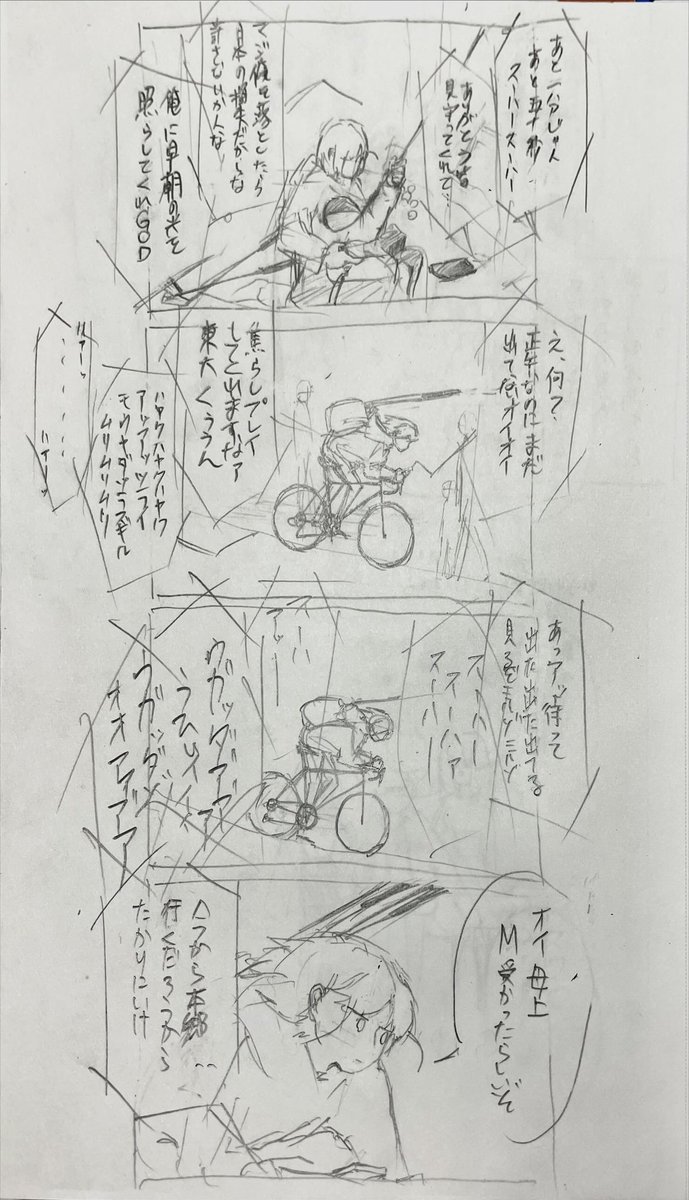 あと一分じゃん
あと五十秒
スーハースーハー
ありがとう皆
見守ってくれて、
マジ俺を落としたら
日本の損失だからな
許さないかんな
俺に早朝の光を
照らしてくれGOD
え、何?
正午なのにまだ
出てないオイオイ
焦らしプレイ
してと出ますなァ
東大くううん
ハヤクハヤクハヤク
アッアッアッツライ
ムリムリムリ
ハアーッ
ハアーッ
あっアッ待って
出た出た出てる
見るぞミルゾミルゾ
スーハー
スーハァ
スーハー
スーハ
アッ
ウガッダアア
うひょイイ
ウガッダン
オオアアアア
オイ母上
M受かったらしいぞ
今から本郷
行くだろうから
たかりにいけ